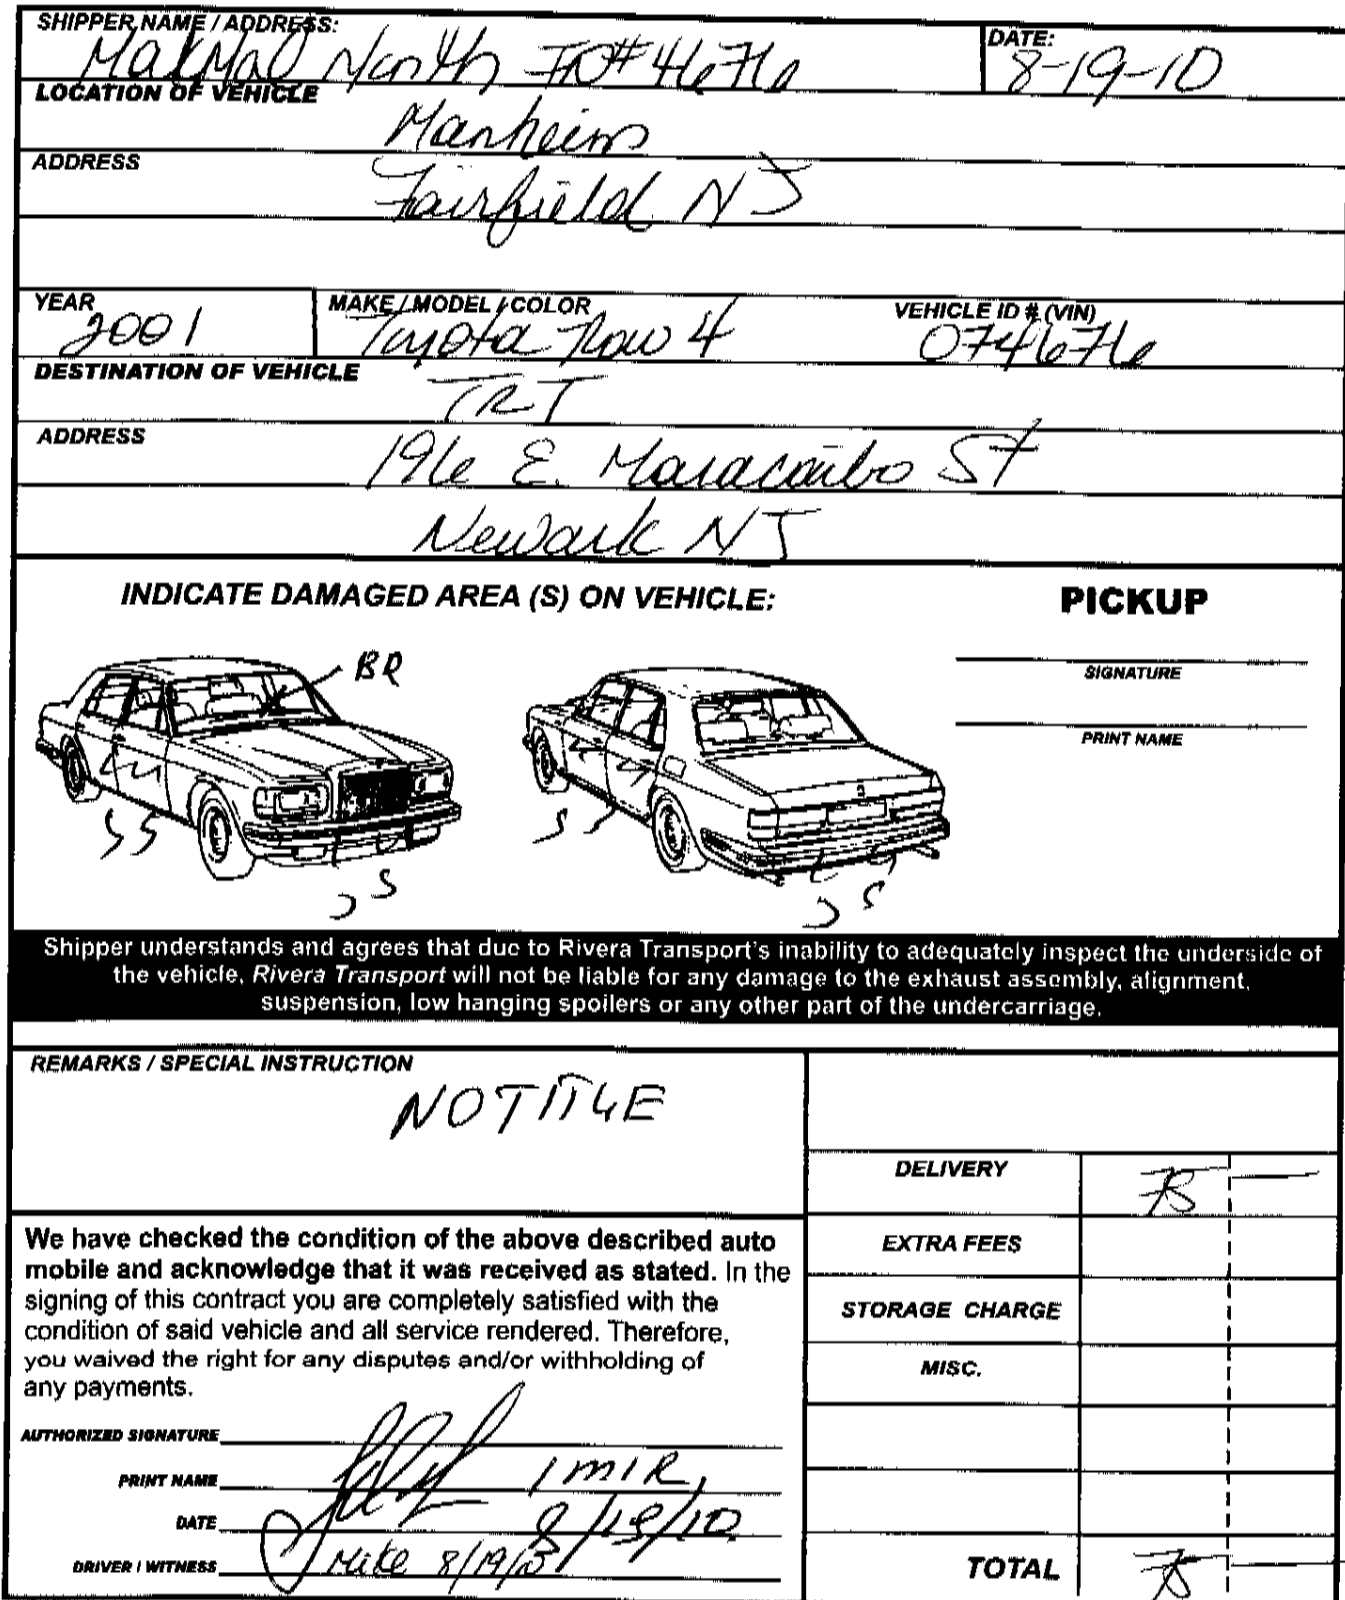 SHIPPER NAME / ADDRESS:
DATE:
MakMal North ID# 4676
8-19-10
LOCATION OF VEHICLE
Manheim
ADDRESS
Fairfield NJ
YEAR
MAKE / MODEL / COLOR
VEHICLE ID # (VIN)
2001
Toyota Rav 4
074676
DESTINATION OF VEHICLE
TRT
ADDRESS
196 E. Maracaibo St
Newark NJ
INDICATE DAMAGED AREA (S) ON VEHICLE:
PICKUP
BR
SIGNATURE
PRINT NAME
S S
S S
S
S
Shipper understands and agrees that due to Rivera Transport's inability to adequately inspect the underside of
the vehicle, Rivera Transport will not be liable for any damage to the exhaust assembly, alignment,
suspension, low hanging spoilers or any other part of the undercarriage.
REMARKS / SPECIAL INSTRUCTION
NO TITLE
DELIVERY 75 —
We have checked the condition of the above described auto
mobile and acknowledge that it was received as stated. In the
signing of this contract you are completely satisfied with the
condition of said vehicle and all service rendered. Therefore,
you waived the right for any disputes and/or withholding of
any payments.
EXTRA FEES
STORAGE CHARGE
MISC.
AUTHORIZED SIGNATURE
PRINT NAME 1 MIR
DATE 8/19/10
DRIVER / WITNESS Mike 8/19/10
TOTAL 75 —